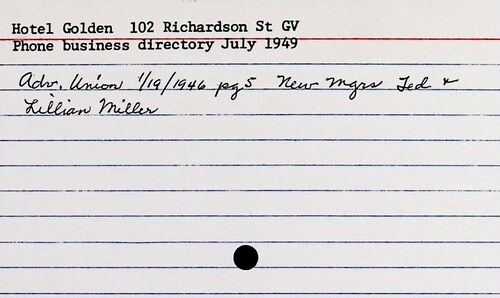 Hotel Golden 102 Richardson St GV
Phone business directory July 1949
Adv. Union 1/19/1946 pg 5 New Mgrs Ted &
Lillian Miller